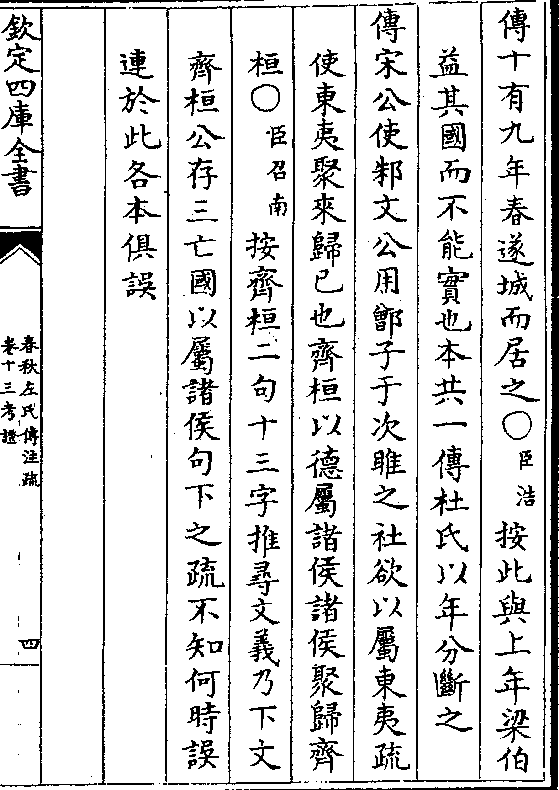 傳十有九年春遂城而居之○臣浩按此與上年梁伯
益其國而不能實也本共一傳杜氏以年分斷之
傳宋公使邾文公用鄫子于次睢之社欲以屬東夷疏
使東夷聚來歸已也齊桓以德屬諸侯諸侯聚歸齊
桓○臣召南按齊桓二句十三字推尋文義乃下文
齊桓公存三亡國以屬諸侯句下之疏不知何時誤
連於此各本俱誤
欽定四庫全書
春秋左氏傳注疏
卷十三考證
四